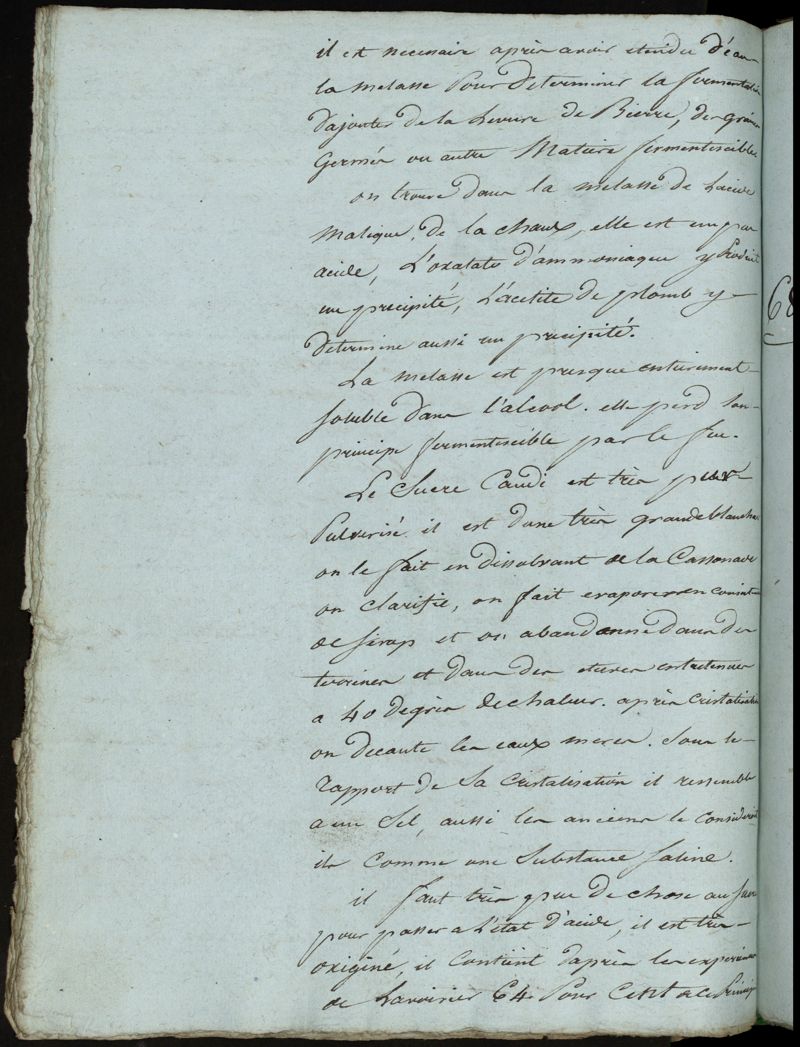 il est necessaire après avoir etendu d'eau
la melasse pour determiner la fermentation
d'ajouter de la Levure de Bierre, des graines
Germés ou autre Matiere fermentescible
on trouve dans la melasse de Lacide
Malique, de la chaux, elle est un peu
acide, L'oxalate d'ammoniaque y Produit
un precipité, L'acetite de plomb y
determine aussi un precipité.
La melasse est presque entierement
soluble dans l'alcool. elle perd son
principe fermentescible par le feu.
Le Sucre Candi est très pur
Pulverisé il est d'une très grande blancheur
on le fait en dissolvant de la Cassonade
on clarifie, on fait evaporer en consistance
de sirop et on abandonne dans des
terrines et dans des etuves entretenues
a 40 degrés de chaleur. après cristalisation
on decante les eaux meres. Sous le
rapport de sa cristalisation il ressemble
a un Sel, aussi les anciens le consideroit
ils comme une Substance Saline.
il faut très peu de chose au sucre
pour passer a L'état d'acide, il est très
oxigéné, il Contient d'après les experiences
de Lavoisier 64 Pour Cent de ce Principe
68